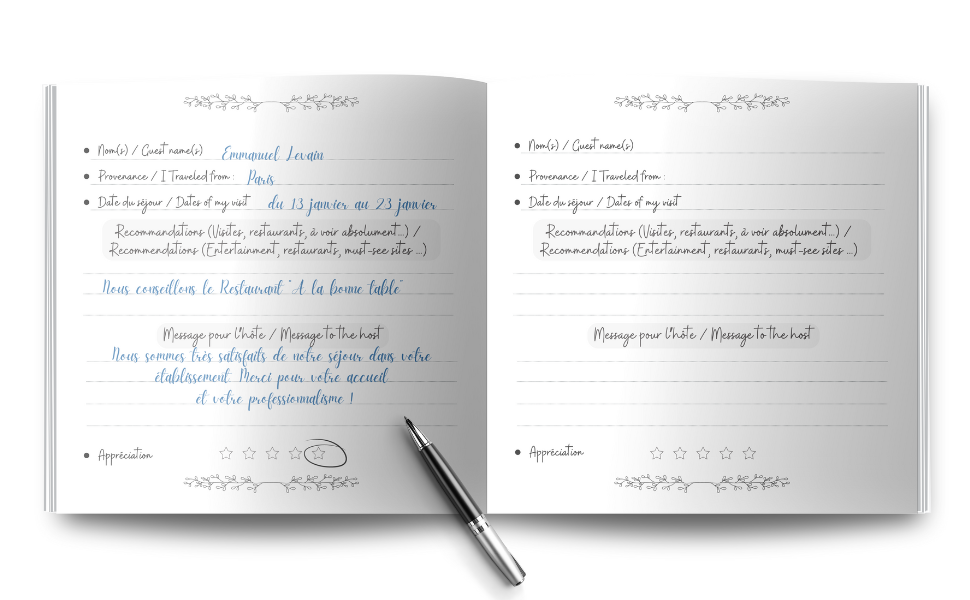 Nom(s) / Guest name(s) Emmanuel Levain
Provenance / I Traveled from : Paris
Date du séjour / Dates of my visit du 13 janvier au 23 janvier
Recommandations (Visites, restaurants, à voir absolument...) /
Recommendations (Entertainment, restaurants, must-see sites ...)
Nous conseillons le Restaurant "A la bonne table"
Message pour l'hôte / Message to the host
Nous sommes très satisfaits de notre séjour dans votre
établissement. Merci pour votre accueil
et votre professionnalisme !
Appréciation
Nom(s) / Guest name(s)
Provenance / I Traveled from :
Date du séjour / Dates of my visit
Recommandations (Visites, restaurants, à voir absolument...) /
Recommendations (Entertainment, restaurants, must-see sites ...)
Message pour l'hôte / Message to the host
Appréciation